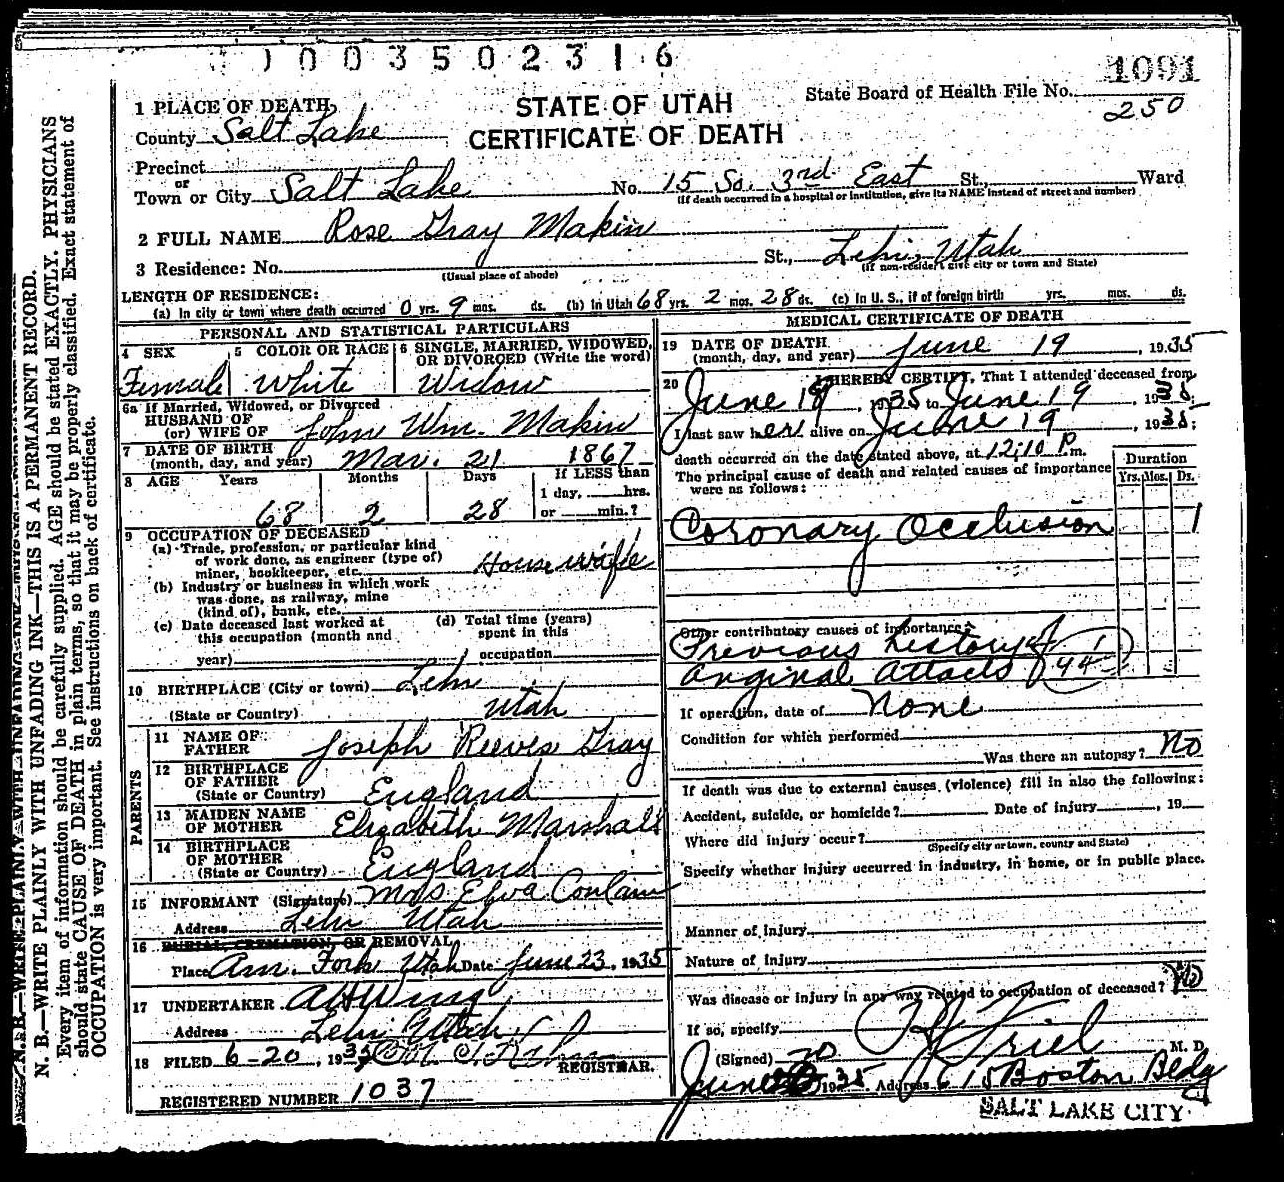 1003502316
1091
State Board of Health File No.
250
STATE OF UTAH
CERTIFICATE OF DEATH
1 PLACE OF DEATH,
County Salt Lake
Precinct
or
Town or City Salt Lake No. 15 So. 3rd East St., Ward
(If death occurred in a hospital or institution, give its NAME instead of street and number)
2 FULL NAME Rose Gray Makin
3 Residence: No. St., Lehi, Utah
(Usual place of abode) (If non-resident give city or town and State)
LENGTH OF RESIDENCE:
(a) In city or town where death occurred 0 yrs. 9 mos. ds. (b) In Utah 68 yrs. 2 mos. 28 ds. (c) In U. S., if of foreign birth yrs. mos. ds.
PERSONAL AND STATISTICAL PARTICULARS
4 SEX 5 COLOR OR RACE 6 SINGLE, MARRIED, WIDOWED, OR DIVORCED (Write the word)
Female White Widow
6a If Married, Widowed, or Divorced
HUSBAND OF
(or) WIFE OF John Wm. Makin
7 DATE OF BIRTH
(month, day, and year) Mar. 21 1867
8 AGE Years Months Days If LESS than
1 day, hrs.
68 2 28 or min.?
9 OCCUPATION OF DECEASED
(a) Trade, profession, or particular kind
of work done, as engineer (type of)
miner, bookkeeper, etc. Housewife
(b) Industry or business in which work
was done, as railway, mine
(kind of), bank, etc.
(c) Date deceased last worked at
this occupation (month and
year)
(d) Total time (years)
spent in this
occupation
10 BIRTHPLACE (City or town) Lehi
(State or Country) Utah
PARENTS
11 NAME OF
FATHER Joseph Reeves Gray
12 BIRTHPLACE
OF FATHER
(State or Country) England
13 MAIDEN NAME
OF MOTHER Elizabeth Marshall
14 BIRTHPLACE
OF MOTHER
(State or Country) England
15 INFORMANT (Signature) Mrs Elva
Address Lehi Utah
16 BURIAL, CREMATION, OR REMOVAL
Place Am. Fork Utah Date June 23, 1935
17 UNDERTAKER A H Wing
Address Lehi Utah
18 FILED 6-20, 193
REGISTRAR.
REGISTERED NUMBER 1037
MEDICAL CERTIFICATE OF DEATH
19 DATE OF DEATH
(month, day, and year) June 19, 1935
20 I HEREBY CERTIFY, That I attended deceased from
June 18, 1935 to June 19, 1935;
I last saw her alive on June 19, 1935;
death occurred on the date stated above, at 12:10 P. m.
The principal cause of death and related causes of importance
were as follows:
Duration
Yrs. Mos. Ds.
Coronary Occlusion 1
Other contributory causes of importance:
Previous history of
Anginal attacks
94
If operation, date of None
Condition for which performed
Was there an autopsy? No
If death was due to external causes (violence) fill in also the following:
Accident, suicide, or homicide? Date of injury , 19
Where did injury occur?
(Specify city or town, county and State)
Specify whether injury occurred in industry, in home, or in public place.
Manner of injury
Nature of injury
Was disease or injury in any way related to occupation of deceased? No
If so, specify
(Signed) M. D.
June 20 1935 Address 615 Boston Bldg
SALT LAKE CITY
N. B.—WRITE PLAINLY WITH UNFADING INK—THIS IS A PERMANENT RECORD.
Every item of information should be carefully supplied. AGE should be stated EXACTLY. PHYSICIANS
should state CAUSE OF DEATH in plain terms, so that it may be properly classified. Exact statement of
OCCUPATION is very important. See instructions on back of certificate.